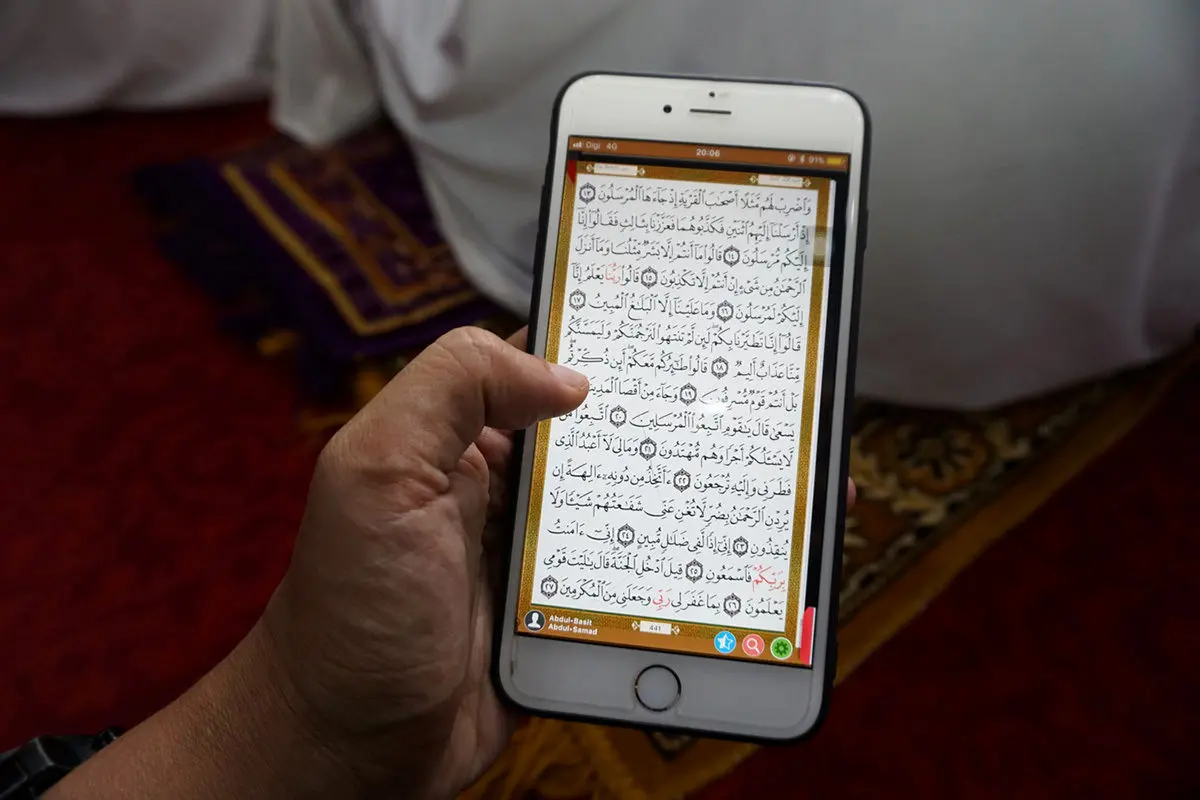 Digi 4G 20:06 91%
وَٱضْرِبْ لَهُم مَّثَلًا أَصْحَٰبَ ٱلْقَرْيَةِ إِذْ جَآءَهَا ٱلْمُرْسَلُونَ ١٣
إِذْ أَرْسَلْنَآ إِلَيْهِمُ ٱثْنَيْنِ فَكَذَّبُوهُمَا فَعَزَّزْنَا بِثَالِثٍ فَقَالُوٓا۟ إِنَّآ
إِلَيْكُم مُّرْسَلُونَ ١٤ قَالُوا۟ مَآ أَنتُمْ إِلَّا بَشَرٌ مِّثْلُنَا وَمَآ أَنزَلَ
ٱلرَّحْمَٰنُ مِن شَىْءٍ إِنْ أَنتُمْ إِلَّا تَكْذِبُونَ ١٥ قَالُوا۟ رَبُّنَا يَعْلَمُ إِنَّآ
إِلَيْكُمْ لَمُرْسَلُونَ ١٦ وَمَا عَلَيْنَآ إِلَّا ٱلْبَلَٰغُ ٱلْمُبِينُ ١٧
قَالُوٓا۟ إِنَّا تَطَيَّرْنَا بِكُمْ لَئِن لَّمْ تَنتَهُوا۟ لَنَرْجُمَنَّكُمْ وَلَيَمَسَّنَّكُم
مِّنَّا عَذَابٌ أَلِيمٌ ١٨ قَالُوا۟ طَٰٓئِرُكُم مَّعَكُمْ أَئِن ذُكِّرْتُم
بَلْ أَنتُمْ قَوْمٌ مُّسْرِفُونَ ١٩ وَجَآءَ مِنْ أَقْصَا
يَسْعَىٰ قَالَ يَٰقَوْمِ ٱتَّبِعُوا۟ ٱلْمُرْسَلِينَ ٢٠ ٱتَّبِعُوا۟ مَن
لَّا يَسْـَٔلُكُمْ أَجْرًا وَهُم مُّهْتَدُونَ ٢١ وَمَا لِىَ لَآ أَعْبُدُ ٱلَّذِى
فَطَرَنِى وَإِلَيْهِ تُرْجَعُونَ ٢٢ ءَأَتَّخِذُ مِن دُونِهِۦٓ ءَالِهَةً إِن
يُرِدْنِ ٱلرَّحْمَٰنُ بِضُرٍّ لَّا تُغْنِ عَنِّى شَفَٰعَتُهُمْ شَيْـًٔا وَلَا
يُنقِذُونِ ٢٣ إِنِّىٓ إِذًا لَّفِى ضَلَٰلٍ مُّبِينٍ ٢٤ إِنِّىٓ ءَامَنتُ
بِرَبِّكُمْ فَٱسْمَعُونِ ٢٥ قِيلَ ٱدْخُلِ ٱلْجَنَّةَ قَالَ يَٰلَيْتَ قَوْمِى
يَعْلَمُونَ ٢٦ بِمَا غَفَرَ لِى رَبِّى وَجَعَلَنِى مِنَ ٱلْمُكْرَمِينَ ٢٧
Abdul-Basit
Abdul-Samad
441